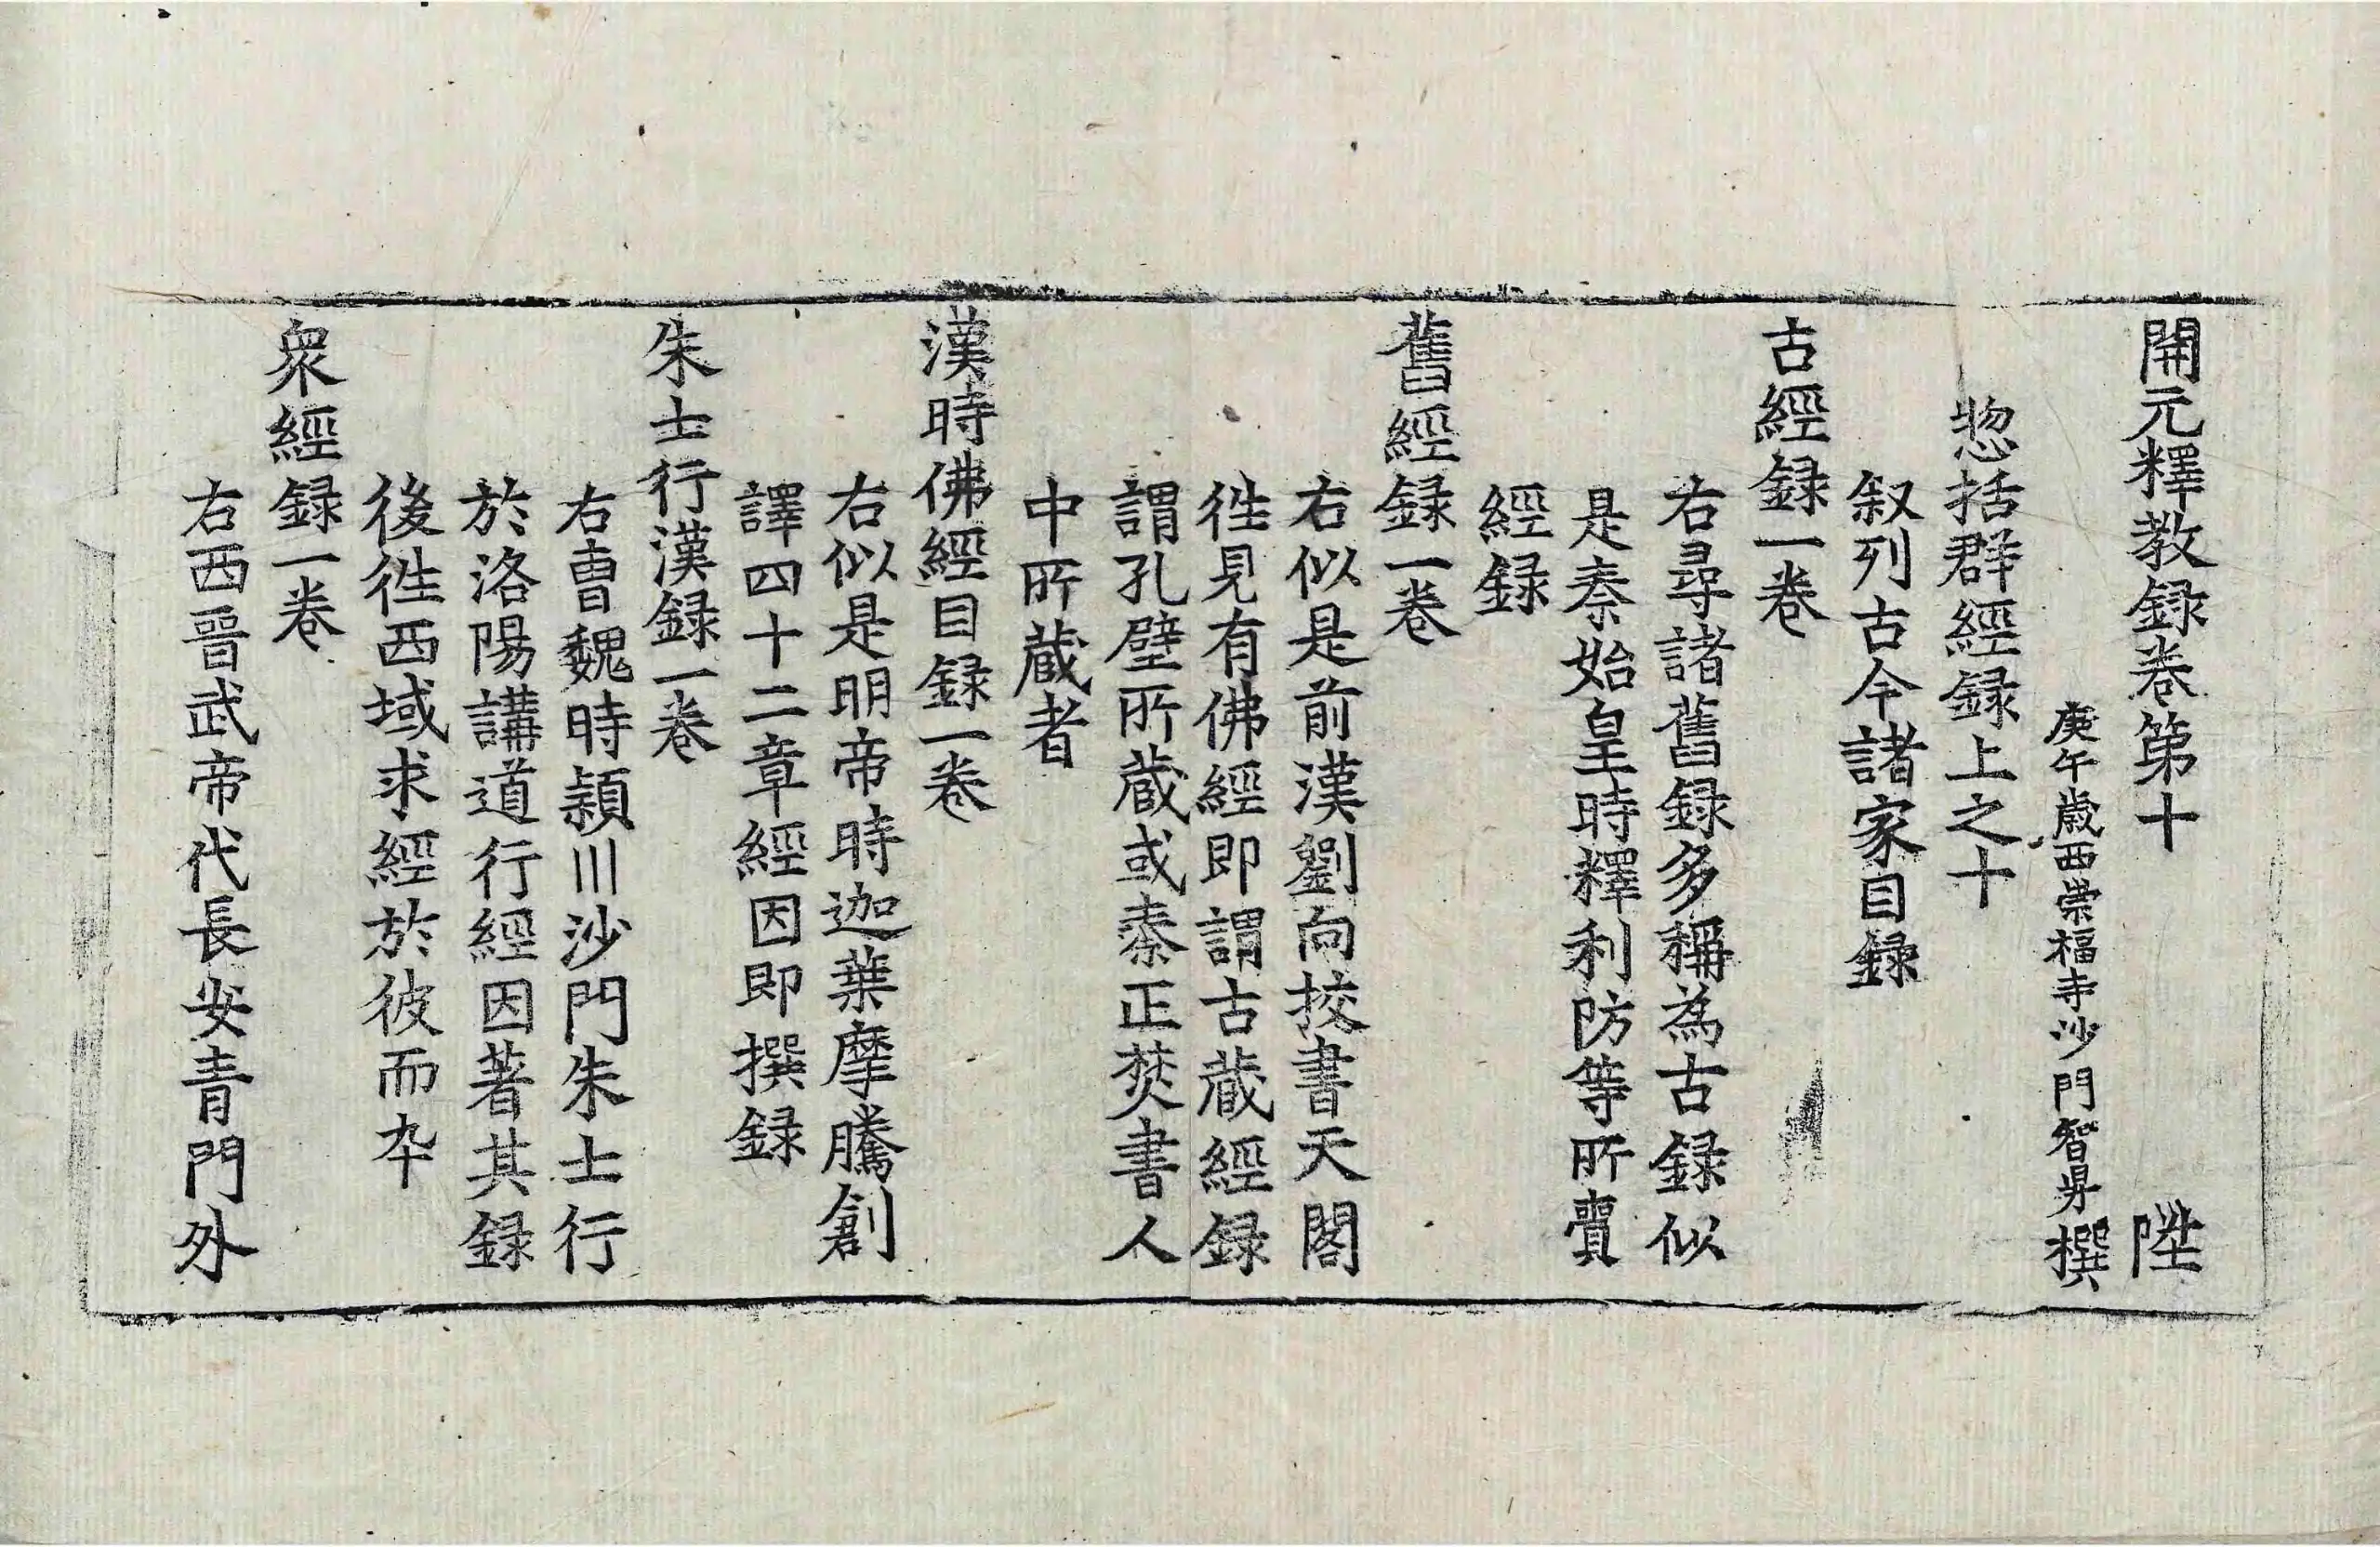 開元釋教録卷第十 陞
庚午歳西崇福寺沙門智昇撰
惣括群經録上之十
叙列古今諸家目録
古經録一卷
右尋諸舊録多稱為古録似
是秦始皇時釋利防等所賷
經録
舊經録一卷
右似是前漢劉向挍書天閣
徃見有佛經即謂古藏經録
謂孔壁所藏或秦正焚書人
中所藏者
漢時佛經目録一卷
右似是明帝時迦葉摩騰創
譯四十二章經因即撰録
朱士行漢録一卷
右曺魏時頴川沙門朱士行
於洛陽講道行經因著其録
後徃西域求經於彼而卒
衆經録一卷
右西晉武帝代長安青門外